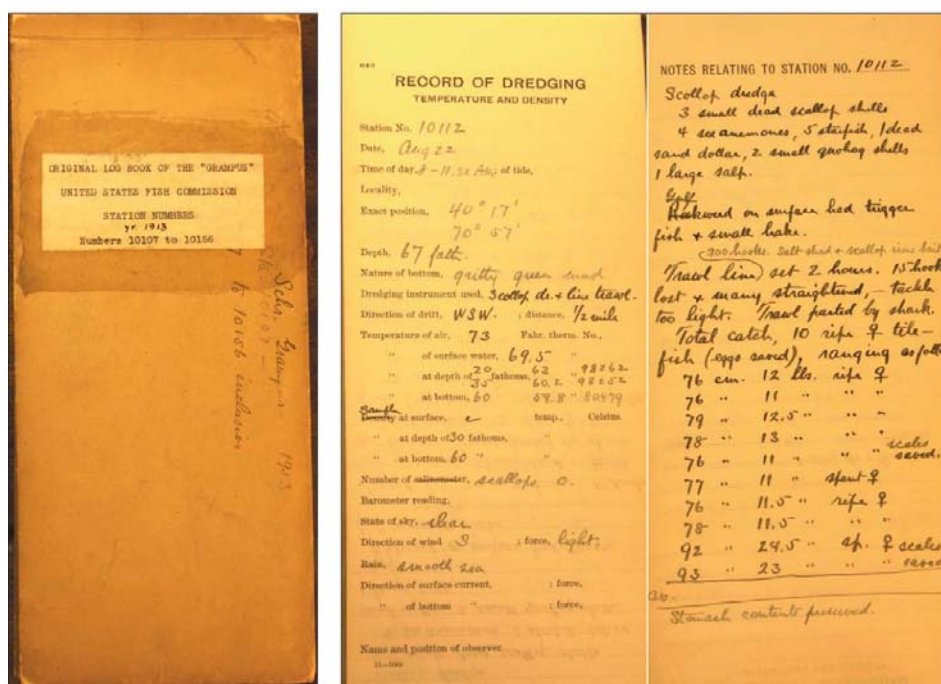 ORIGINAL LOG BOOK OF THE "GRAMPUS"
UNITED STATES FISH COMMISSION
STATION NUMBERS
yr. 1913
Numbers 10107 to 10156
Schr. Grampus 1913
Sta 10107 —
to 10156 inclusive
RECORD OF DREDGING
TEMPERATURE AND DENSITY
Station No. 10112
Date, Aug 22
Time of day, 8-11.30 AM; of tide,
Locality,
Exact position, 40° 17'
70° 57'
Depth, 67 fath.
Nature of bottom, gritty green mud
Dredging instrument used, Scallop dr. & line trawl.
Direction of drift, WSW. ; distance, 1/2 mile
Temperature of air, 73 Fahr. therm. No.,
" of surface water, 69.5 "
" at depth of 20 fathoms, 62 " 98262
35 60.2 " 98252
" at bottom, 60 59.8 " 80479
Sample
Density at surface, c temp., Celsius.
" at depth of 30 fathoms, "
" at bottom, 60 " "
Number of salinometer, scallops 0.
Barometer reading,
State of sky, clear
Direction of wind S ; force, light.
Rain, smooth sea
Direction of surface current, ; force,
" of bottom " ; force,
Name and position of observer
NOTES RELATING TO STATION NO. 10112
Scollop dredge
3 small dead scallop shells
4 sea anemones, 5 starfish, 1 dead
sand dollar, 2 small quohog shells
1 large salp.
Gulf
weed on surface had trigger
fish & small hake.
300 hooks. Salt shad & scallop rims bait
Trawl line) set 2 hours. 15 hooks
lost & many straightened, — tackle
too light. Trawl parted by shark.
Total catch, 10 ripe ♀ tile-
fish (eggs saved), ranging as follo
76 cm. 12 lbs. ripe ♀
76 " 11 " " "
79 " 12.5 " " "
78 " 13 " " "
76 " 11 " " " scales saved.
77 " 11 " spent ♀
76 " 11.5 " ripe ♀
78 " 11.5 " " "
92 " 24.5 " sp. ♀ scales
93 " 23 " " " saved
av.
Stomach contents preserved.